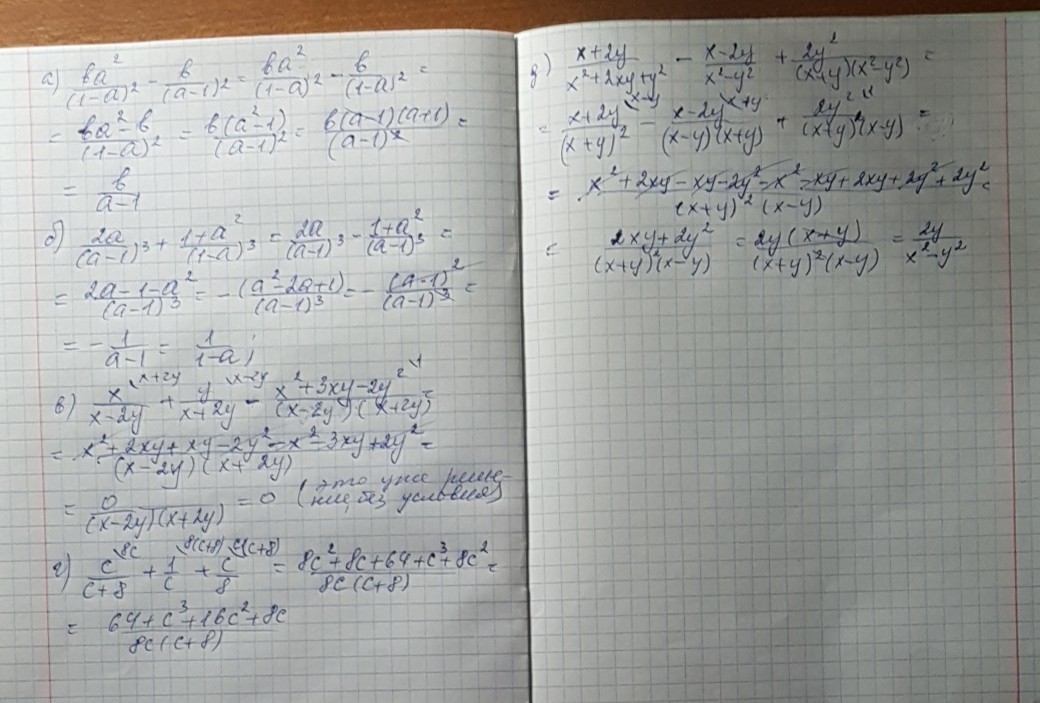 а) вa²/(1-a)² - в/(a-1)² = вa²/(1-a)² - в/(1-a)² =
= вa²-в/(1-a)² = в(a²-1)/(a-1)² = в(a-1)(a+1)/(a-1)² =
= в/a-1
б) 2a/(a-1)³ + 1+a²/(1-a)³ = 2a/(a-1)³ - 1+a²/(a-1)³ =
= 2a-1-a²/(a-1)³ = -(a²-2a+1)/(a-1)³ = -(a-1)²/(a-1)³ =
= -1/a-1 = 1/1-a;
в) x\x+2y/x-2y + y\x-2y/x+2y - x²+3xy-2y²\1/(x-2y)(x+2y) =
= x²+2xy+xy-2y²-x²-3xy+2y²/(x-2y)(x+2y) =
= 0/(x-2y)(x+2y) = 0 (это уже реше-
ние, без условия)
г) c\8c/c+8 + 1\8(c+8)/c + c\c(c+8)/8 = 8c²+8c+64+c³+8c²/8c(c+8) =
= 64+c³+16c²+8c/8c(c+8)
д) x+2y/x²+2xy+y² - x-2y/x²-y² + 2y²/(x+y)(x²-y²) =
= x+2y\x-y/(x+y)² - x-2y\x+y/(x-y)(x+y) + 2y²\1/(x+y)²(x-y) =
= x²+2xy-xy-2y²-x²-xy+2xy+2y²+2y²/(x+y)²(x-y) =
= 2xy+2y²/(x+y)²(x-y) = 2y(x+y)/(x+y)²(x-y) = 2y/x²-y²